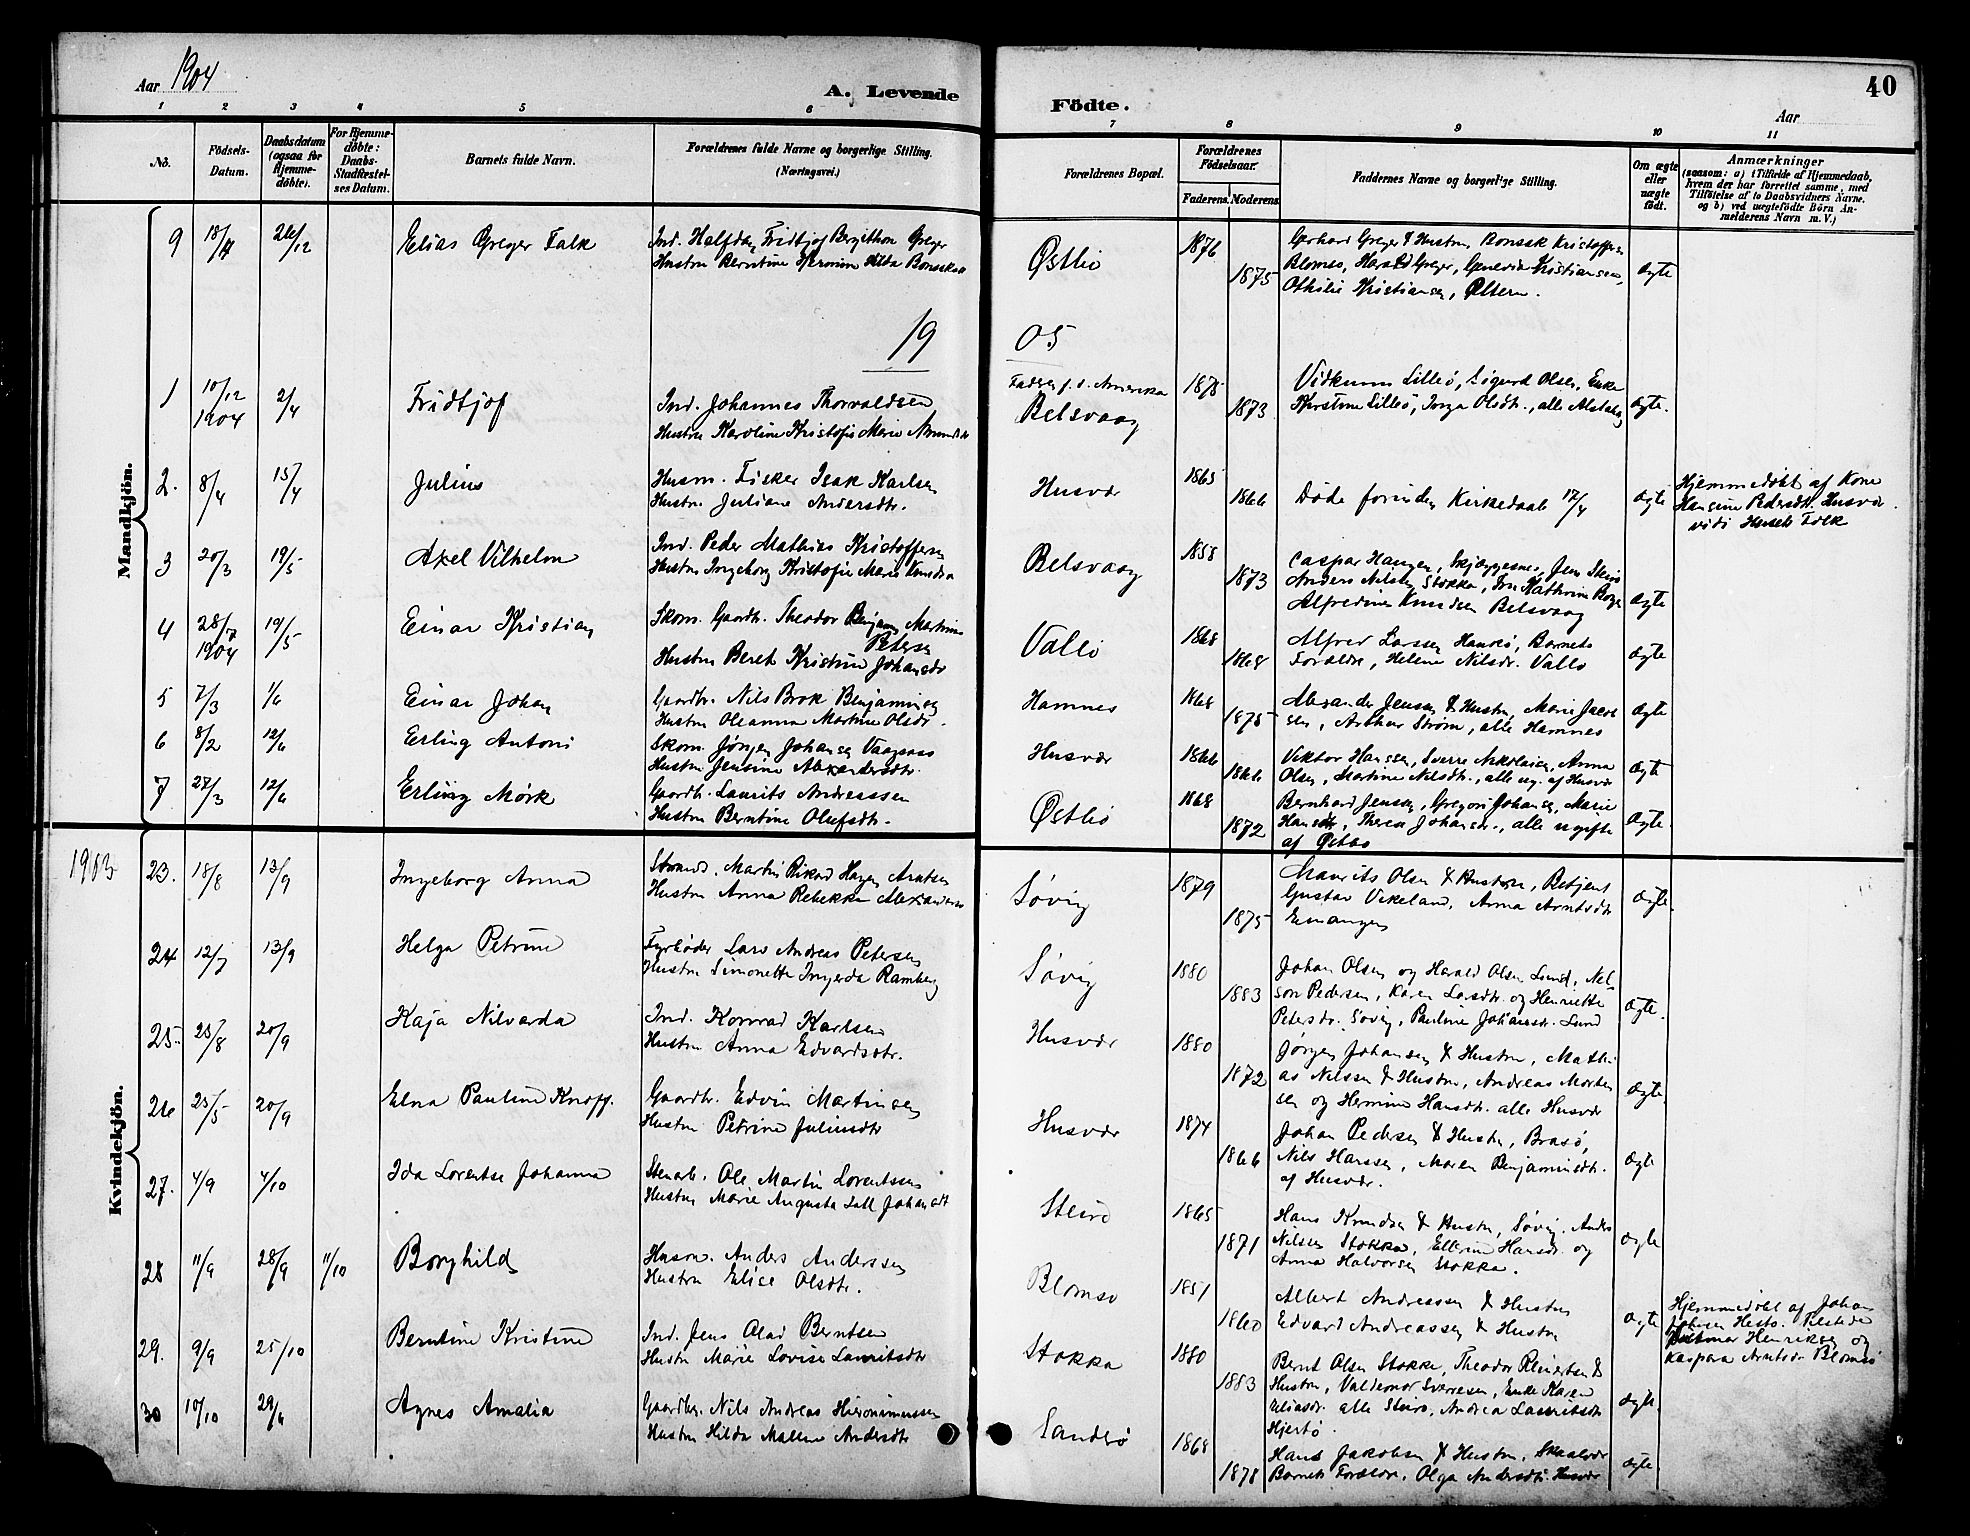 Aar 1904
A. Levende Födte.
40
Aar
1 2 3 4 5 6 7 8 9 10 11
No.
Födsels-Datum.
Daabsdatum (ogsaa for Hjemme-döbte).
For Hjemme-döbte: Daabs-Stadfæstel-ses Datum.
Barnets fulde Navn.
Forældrenes fulde Navne og borgerlige Stilling.
(Næringsvei.)
Forældrenes Bopæl.
Forældrenes Födselsaar.
Faderens. Moderens.
Faddernes Navne og borgerlige Stilling.
Om ægte eller uægte födt.
Anmærkninger
(saasom: a) i Tilfælde af Hjemmedaab,
hvem der har forrettet samme, med
Tilföielse af to Daabsvidners Navne.
og b) ved uægtefödte Börn An-
melderens Navn m. V.)
Mandkjön.
9 18/4 26/12 Elias Greger Falk
Ind. Halfdan Fridtjof Bergithon Greger
Hustru Berntine Hermine Hilda
Østbø 1876 1875
Gerhard Greger & Hustru, Kristoffersen
Blomsø, Harald Greger, Kristiansen,
Othilie Kristiansen,
ægte
19 05
1 10/12 1904 2/4 Fridtjof
Ind. Johannes Thorvaldsen
Hustru Karoline Kristofie Marie
Fader f. t. Amerika
Belsvaag 1875 1873
Vidkunn Lilleø, Sigurd Olsen, Enke
Kirstine Lilleø, Inga Olsdt., alle
ægte.
2. 8/4 15/4 Julius
Husm. Fisker Isak Karlsen
Hustru Juliane Andersdtr.
Husvær 1865 1866
Døde forinden Kirkedaab 17/4
ægte
Hjemmedøbt af Kone
Hansine Pedersdtr. Husvær.
Husets Folk
3 20/3 19/5 Axel Vilhelm
Ind. Peder Mathias Kristoffersen
Hustru Ingeborg Kristofie Marie Knudsen
Belsvaag 1858 1873
Caspar Hansen, Skjeggesnes, Jens
Anders Nilsen Stokka, Kathrine
Alfredine Knudsen Belsvaag
ægte
4 28/7 1904 19/5 Einar Kristian
Skom. Gaardbr. Theodor Benjamin Martinus
Petersen
Hustru Beret Kristine Johansdtr
Vallø 1868 1868
Alfred Larssen Barnets
Forældre, Helene Nilsdr. Vallø
ægte
5 7/3 1/6 Einar Johan
Gaardbr. Nils Brok Benjaminsen
Hustru Oleanna Martine Olsdr.
Hamnes 1868 1875
Alexander Jensen & Hustru, Marie Jacob
sen, Arthur Strøm, alle Hamnes
ægte
6 8/2 12/6 Erling Antoni
Skom. Jørgen Johansen
Hustru Jensine Alexandersdtr.
Husvær 1866 1866
Viktor Hansen, Sverre Nikolaisen, Anna
Olsen, Martine Nilsdtr., alle ug. af Husvær
ægte
7 27/3 12/6 Erling Mörk
Gaardbr. Laurits Andreassen
Hustru Berntine Olufsdtr.
Østbø 1868 1872
Bernhard Jensen, Gregori Johansen, Marie
Hansdtr, Therea Johansdr., alle ugifte
af Østbø
ægte.
Kvindekjön.
1903
23. 18/8 13/9 Ingeborg Anna
Martin Rikard Hagen Arntsen
Hustru Anna Rebekka Alexandersen
Søvig 1879 1875
Maurits Olsen & Hustru, Betjent
Gustav Vikeland, Anna Arntsdtr
ægte.
24 12/7 13/9 Helga Petrine
Fyrbøder Lars Andreas Petersen
Hustru Simonette Ingerda Ramberg
Søvig 1880 1883
Johan Olsen og Harald Olsen Lund, Nel-
son Pedersen, Karen Larsdtr. og Henriette
Petersdr. Søvig, Pauline Johansdr. Lund
ægte.
25 23/8 20/9 Kaja Nilvarda
Ind. Konrad Karlsen
Hustru Anna Edvardsdtr.
Husvær 1880 1872
Jørgen Johansen & Hustru, Mathi
as Nilssen & Hustru, Andreas Morten
sen og Hermine Hansdtr. alle Husvær
ægte.
26 25/5 20/9 Elna Pauline Knoff.
Gaardbr. Edvin Martinsen
Hustru Petrine Juliusdtr
Husvær 1874 1866
Johan Pedersen & Hustru, Brasø,
Nils Hanssen, Maren Benjaminsdtr.
af Husvær.
ægte
27. 4/9 4/10 Ida Lorentse Johanna
Stenarb. Ole Martin Lorentsen
Hustru Marie Augusta Johansdt
Steirø 1865 1871
Hans Knudsen & Hustru, Søvig, Anders
Nilsen Stokka, Ellerine Hansdr. og
Anna Halvorsen Stokka.
ægte
28 11/9 28/9 11/10 Borghild
Husm. Anders Anderssen
Hustru Elise Olsdtr.
Blomsø 1851 1860
Albert Andreassen & Hustru
Edvard Andreassen & Hustru
ægte
Hjemmedøbt af Johan
Tilstede
Henriksen og
Kaspara Arntsdr Blomsø
29. 9/9 25/10 Berntine Kristine
Ind. Jens Olai Berntsen
Hustru Marie Lovise Lauritsdtr
Stokka 1880 1883
Bernt Olsen Stokka, Theodor Reinertsen &
Hustru, Valdemar Sverresen, Enke Karen
Eliasdr. alle Steirø, Andrea Lauritsdtr
Hjertø.
ægte.
30 10/10 29/4 Agnes Amalia
Gaardbr. Nils Andreas Hieronimussen
Hustru Hilda Malene Andersdtr
Sandsø 1868 1878
Hans Jakobsen & Hustru, Skaalvær
Barnets Forældre, Olga Andersdtr. Husvær
ægte